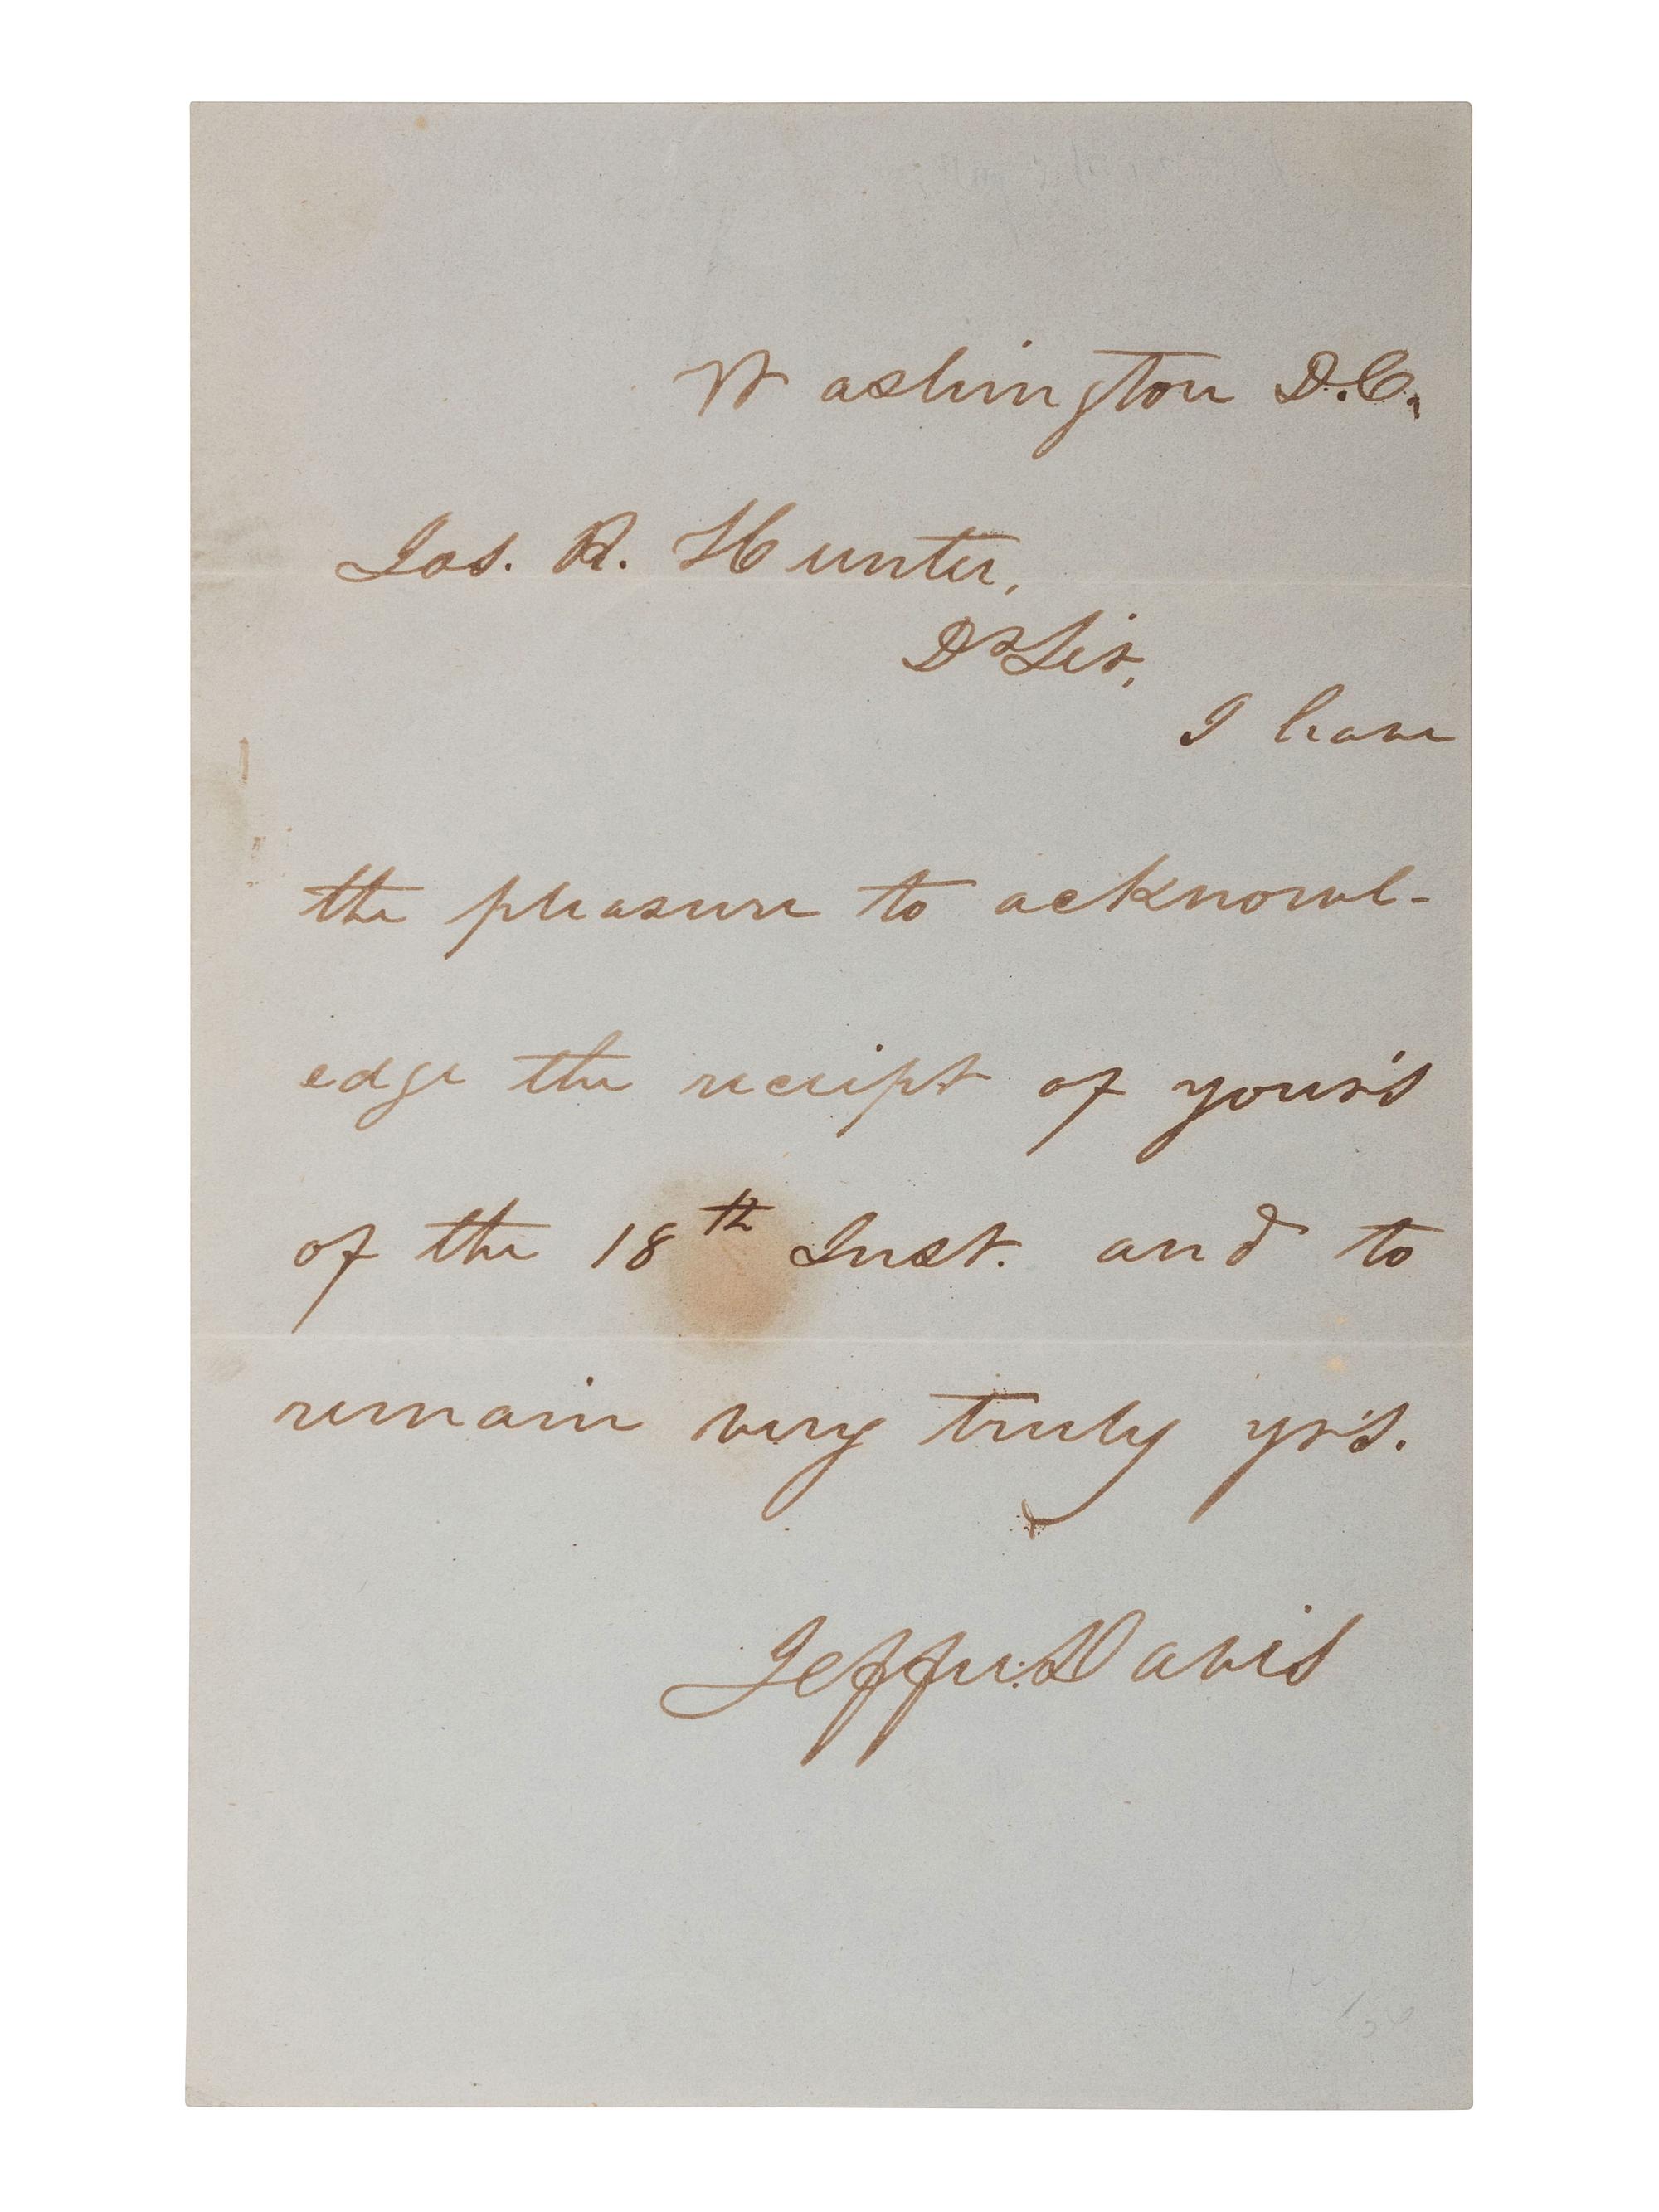 Washington D.C.
Jos. R. Hunter,
Dr Sir,
I have
the pleasure to acknowl-
edge the receipt of your's
of the 18th Inst. and to
remain very truly yr's.
Jeffn: Davis